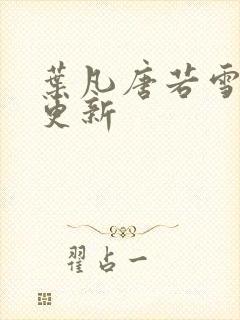 葉凡唐若雪
更新
翟占一